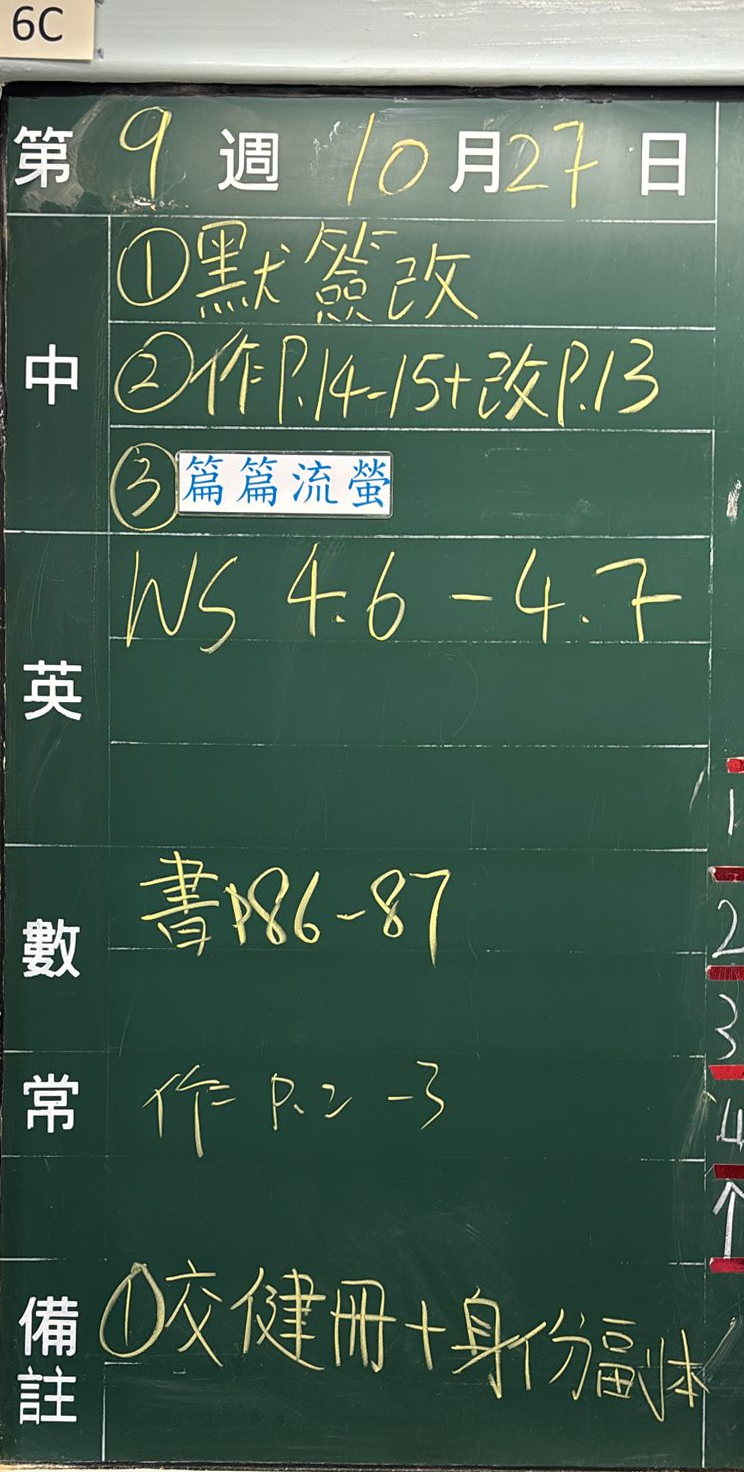 6C
第 9 週 10 月 27 日
中
①默簽改
②作P.14-15+改P.13
③篇篇流螢
英
WS 4.6 - 4.7
數
書P86-87
常
作 P.2 -3
備註
①交健冊+身份副本
1
2
3
4
↑